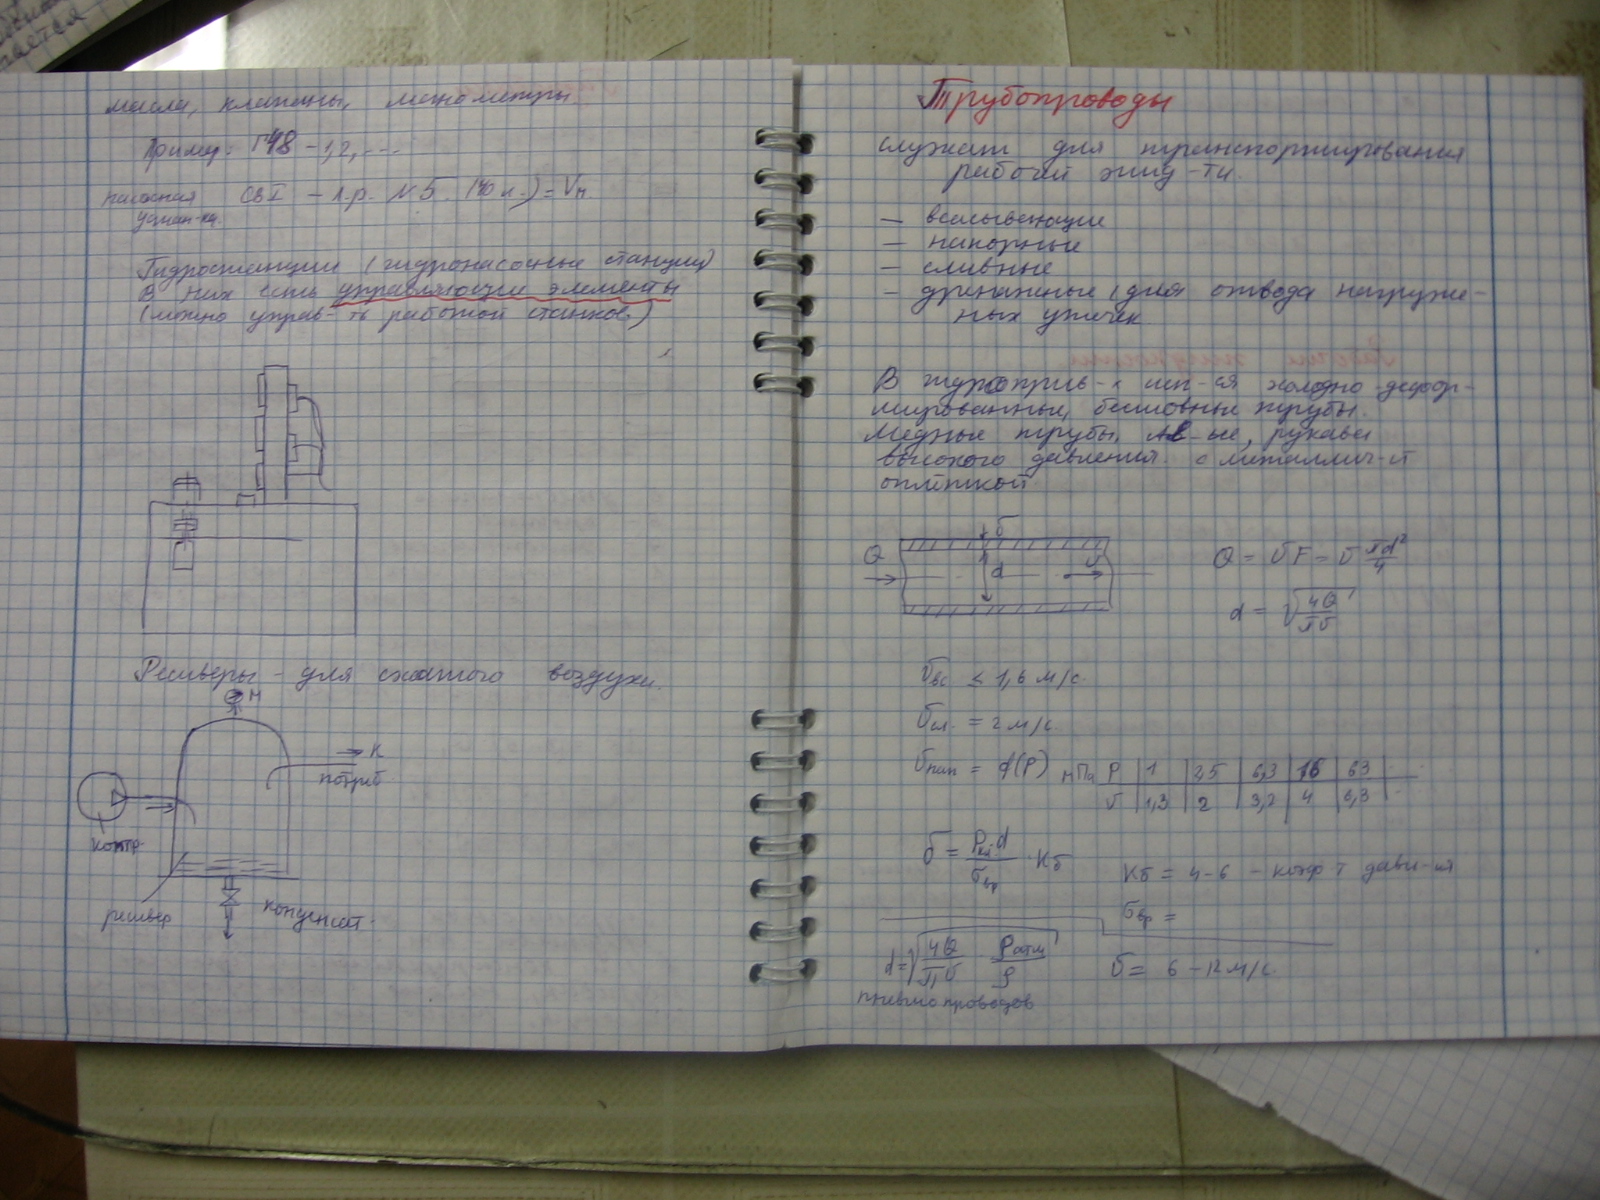 масла, клапаны, манометры.
Пример: Г48 – 1,2, ...
насосная СВI – л.р. №5. (40 л.) = Vн.
устан-ка.
Гидростанции (гидронасосные станции)
В них есть управляющие элементы
(можно управ-ть работой станков.)
Ресиверы – для сжатого воздуха.
М
К
потреб
компр
ресивер
конденсат.
Трубопроводы
служат для транспортирования
рабочей жид-ти.
– всасывающие
– напорные
– сливные
– дренажные (для отвода наружен-
ных утечек.
В гидроприв-х исп-ся холодно-дефор-
мированные, бесшовные трубы.
Медные трубы, Al-ые, рукава
высокого давления с металлич-й
оплёткой
Q d δ υ
Q = υF = υ πd²/4
d = √(4Q/πυ)
υвс. ≤ 1,6 м/с.
υсл. = 2 м/с.
υнап = f(P) мПа P | 1 | 2,5 | 6,3 | 16 | 63
υ | 1,3 | 2 | 3,2 | 4 | 6,3
δ = P·d/σвр · Kб
Kб = 4-6 – коэф-т
σвр =
d = √(4Q/πυ ρатм/ρ)
υ = 6 – 12 м/с.
пневмопроводов